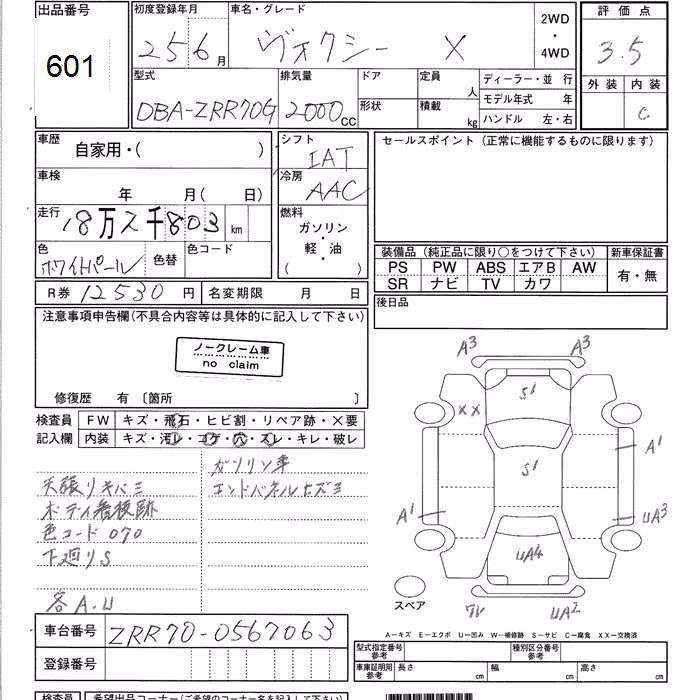 出品番号
601
初度登録年月
25 6月
車名・グレード
ヴォクシー X
2WD
・
4WD
評価点
3.5
外装 内装
C
型式
DBA-ZRR70G
排気量
2000cc
ドア
形状
定員 人
積載 kg
ディーラー・並 行
モデル年式 年
ハンドル 左・右
車歴
自家用・( )
シフト
IAT
セールスポイント (正常に機能するものに限ります)
車検
年 月( 日)
冷房
AAC
走行
18万2千803km
燃料
ガソリン
軽・油
( )
色
ホワイトパール
色替
色コード
装備品 (純正品に限り○をつけて下さい) 新車保証書
PS PW ABS エアB AW
SR ナビ TV カワ
有・無
R券 12530 円 名変期限 月 日
後日品
注意事項申告欄(不具合内容等は具体的に記入して下さい)
ノークレーム車
no claim
修復歴 有 〔箇所 〕
検査員 FW キズ・飛石・ヒビ割・リペア跡・X要
記入欄 内装 キズ・汚レ・コゲ・穴・スレ・キレ・破レ
ガソリン車
天張りキバミ エンドパネルヒズミ
ボディ看板跡
色コード070
下廻りS
各A.U
A3 A3
S1
XX
A1
S1
A1 UA3
UA4
スペア
UA2
A—キズ E—エクボ U—凹み W—補修跡 S—サビ C—腐食 XX—交換済
車台番号 ZRR70-0567063
登録番号
型式指定番号
参考
種別区分番号
参考
車庫証明用
参考
長さ cm 幅 cm 高さ cm
検査員 希望出品コーナー(ご希望のコーナー名を記入下さい)